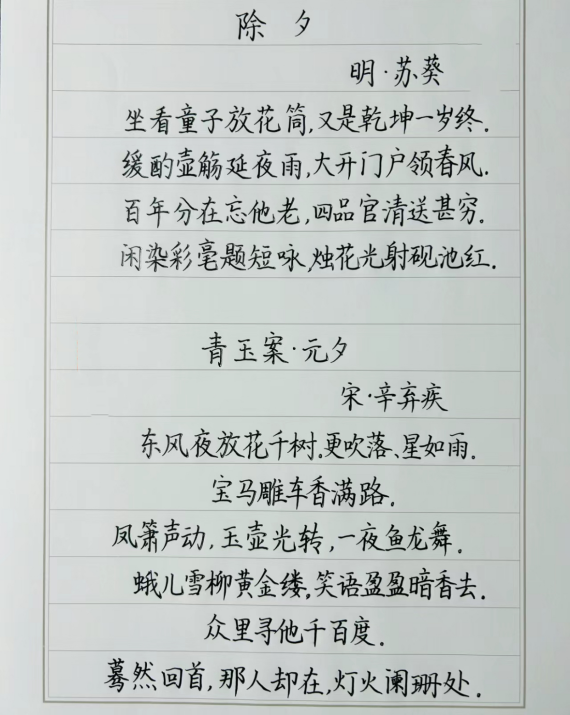 除夕
明·苏葵
坐看童子放花筒,又是乾坤一岁终.
缓酌壶觞延夜雨,大开门户领春风.
百年分在忘他老,四品官清送甚穷.
闲染彩毫题短咏,烛花光射砚池红.
青玉案·元夕
宋·辛弃疾
东风夜放花千树.更吹落、星如雨.
宝马雕车香满路.
凤箫声动,玉壶光转,一夜鱼龙舞.
蛾儿雪柳黄金缕,笑语盈盈暗香去.
众里寻他千百度.
蓦然回首,那人却在,灯火阑珊处.